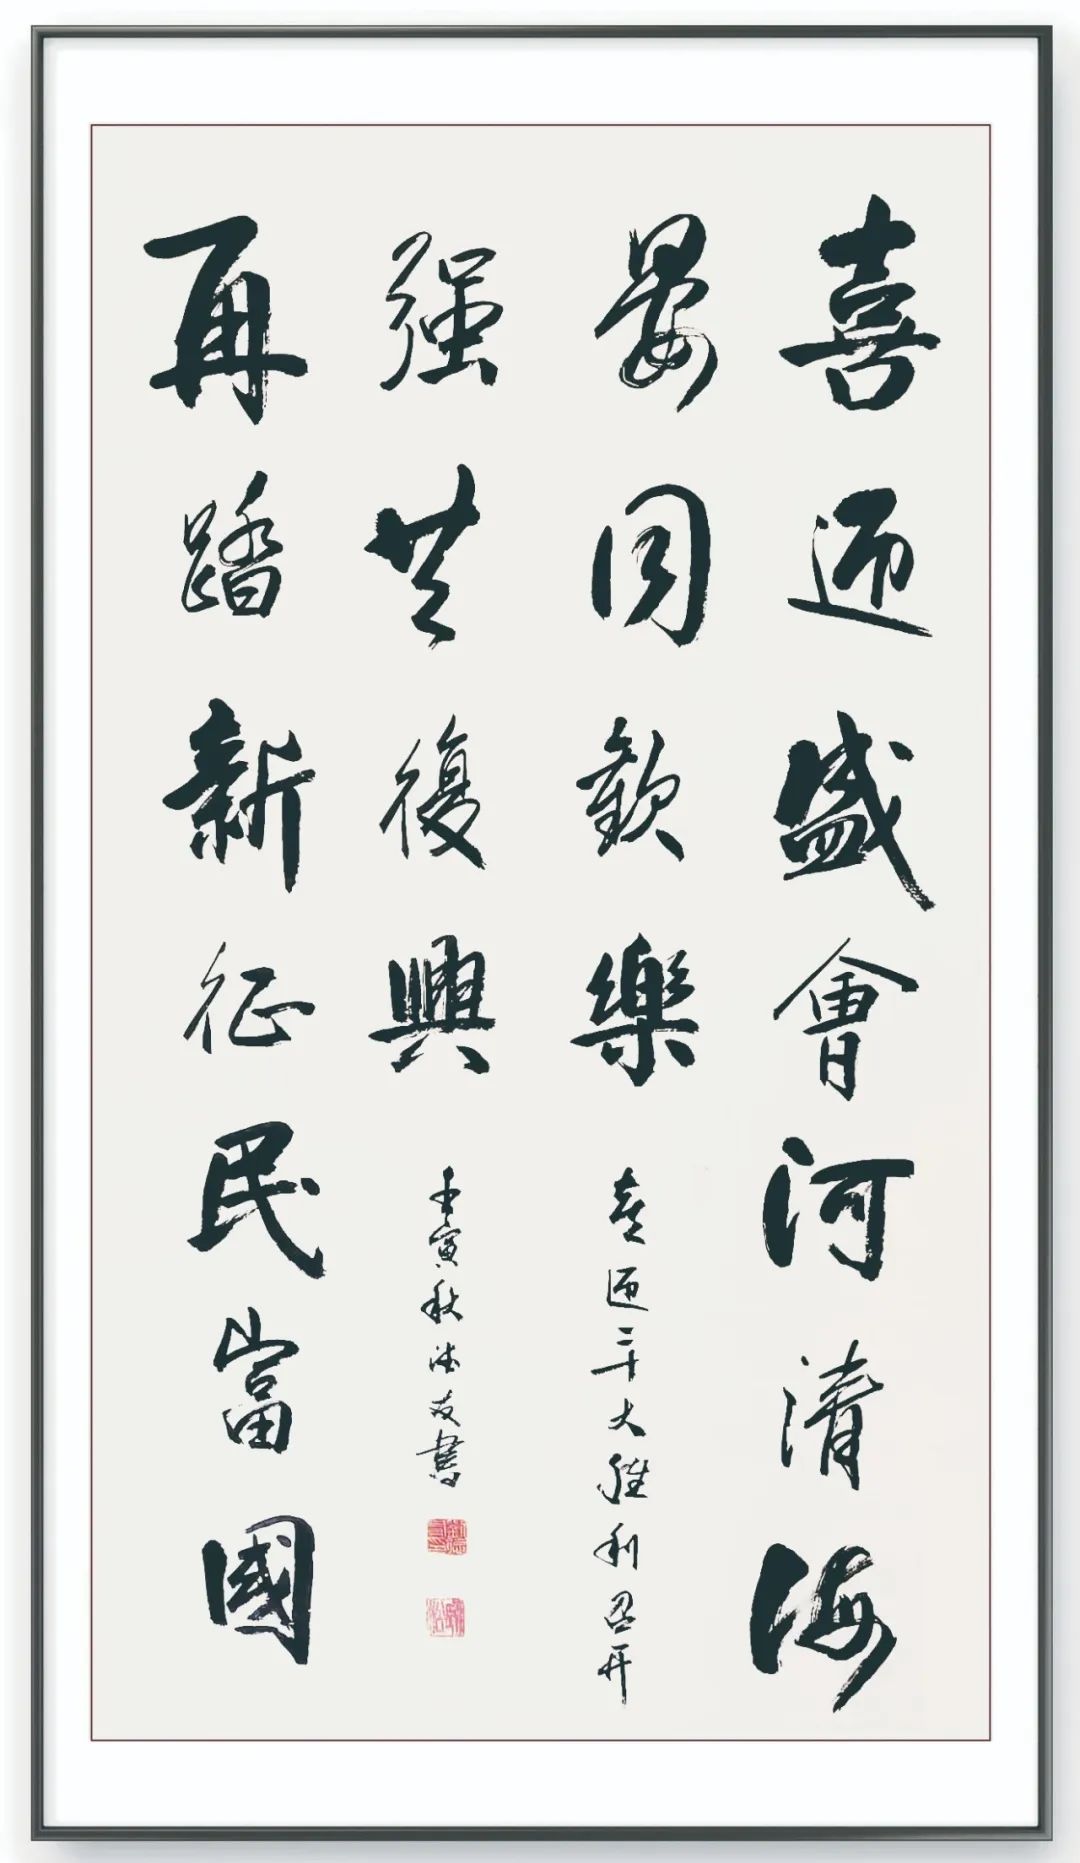 喜迎盛會河清海
晏同歡樂
喜迎二十大勝利召开
再踏新征民富國
强共復興
壬寅秋德友書